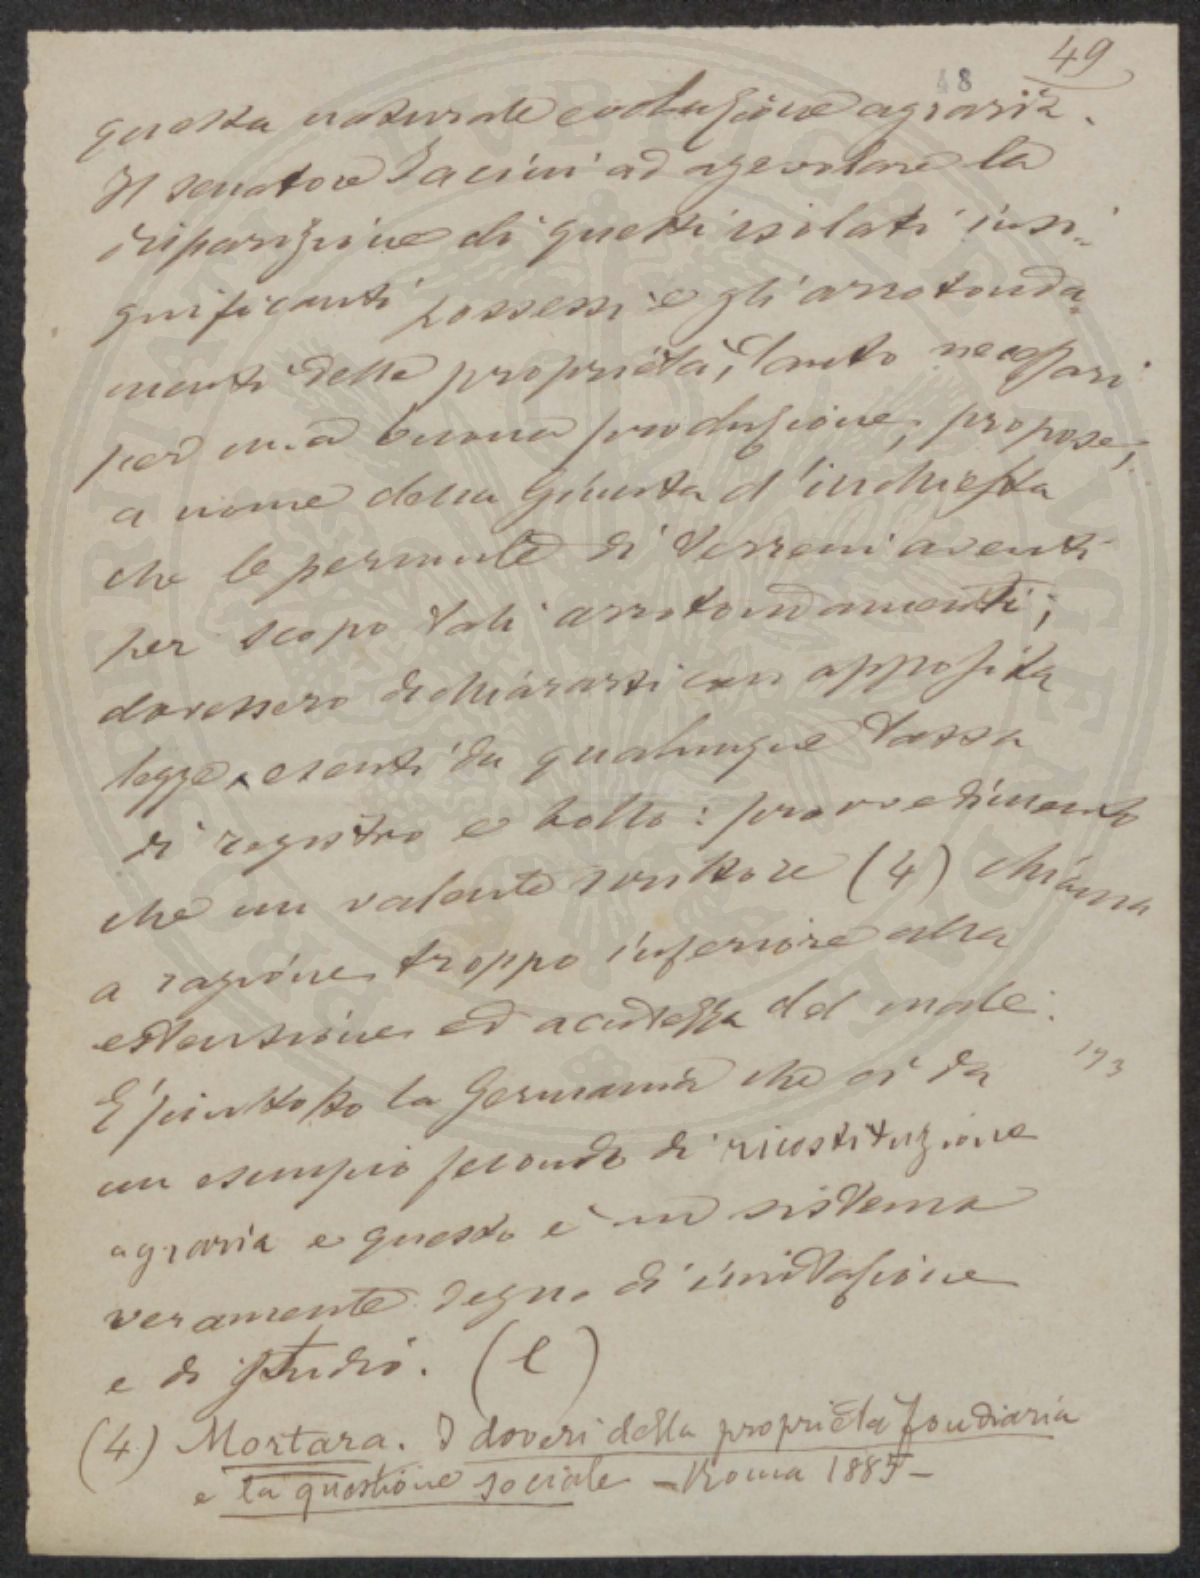 49
48
questa naturale evoluzione agraria.
Il senatore Jacini ad agevolare la
sparizione di questi isolati insi-
gnificanti possessi e gli arrotonda-
menti della proprietà, tanto necessari
per una buona produzione, propose,
a nome della Giunta d'inchiesta
che le permute di terreni aventi
per scopo tali arrotondamenti,
dovessero dichiararsi con apposita
legge esenti da qualunque tassa
di registro e bollo: provvedimento
che un valente scrittore (4) chiama
a ragione troppo inferiore alla
estensione ed acutezza del male.
È piuttosto la Germania che ci da
193
un esempio fecondo di ricostituzione
agraria e questo è un sistema
veramente degno di imitazione
e di studio. (l)
(4) Mortara. I doveri della proprietà fondiaria
e la questione sociale – Roma 1885 –